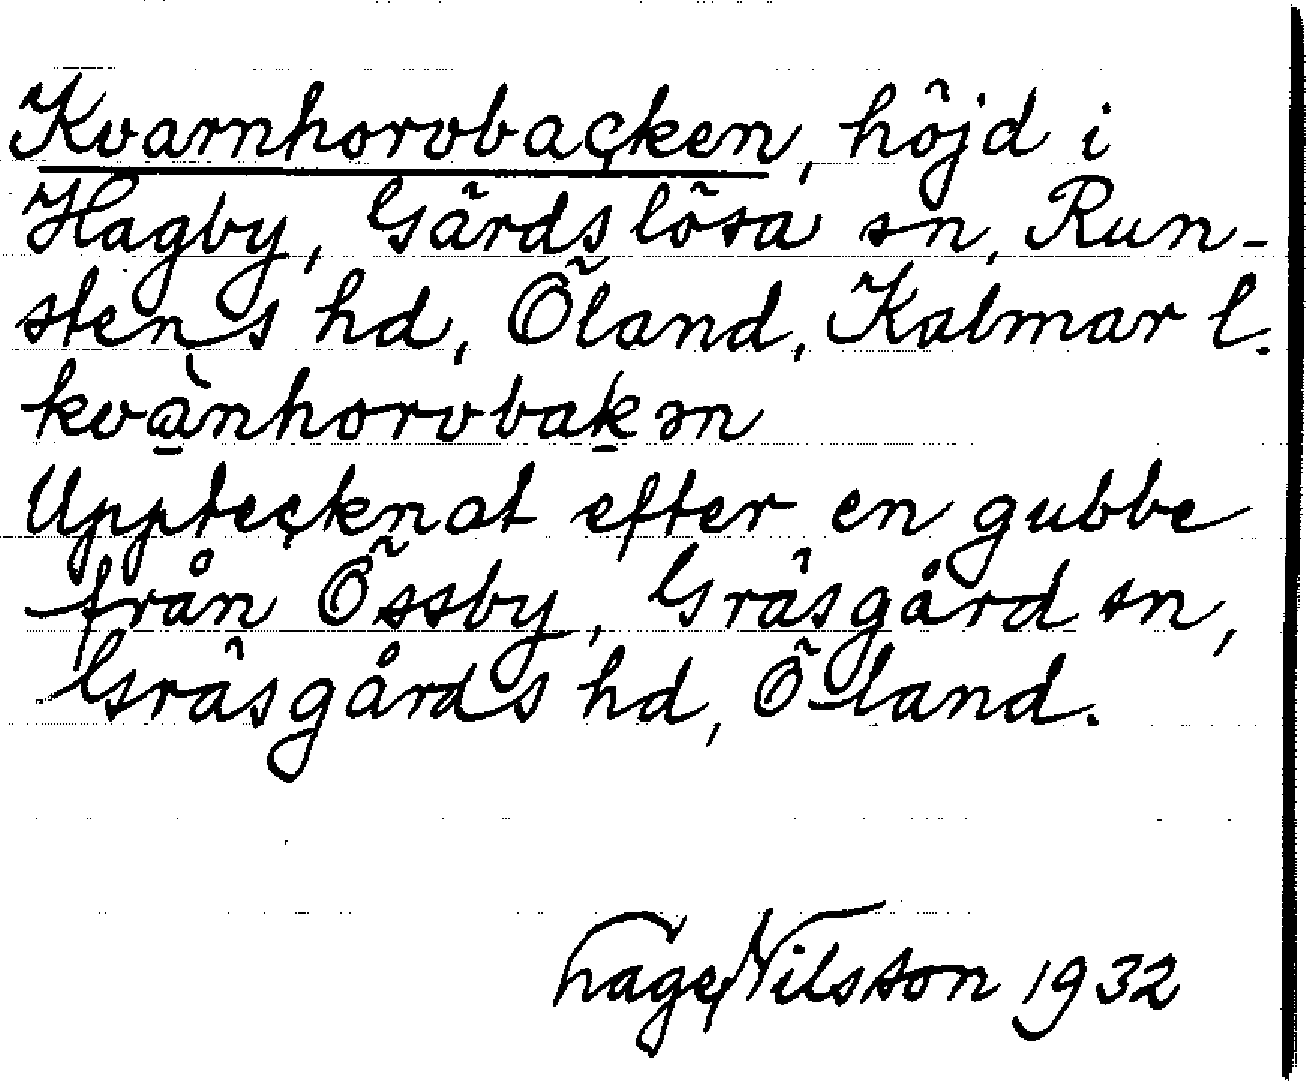 Kvarnhorvbacken, höjd i
Hagby, Gärdslösa sn, Run-
stens hd, Öland, Kalmar l.
kvànhorvbakən
Upptecknat efter en gubbe
från Össby, Gräsgård sn,
Gräsgårds hd, Öland.
Tage Nilsson 1932